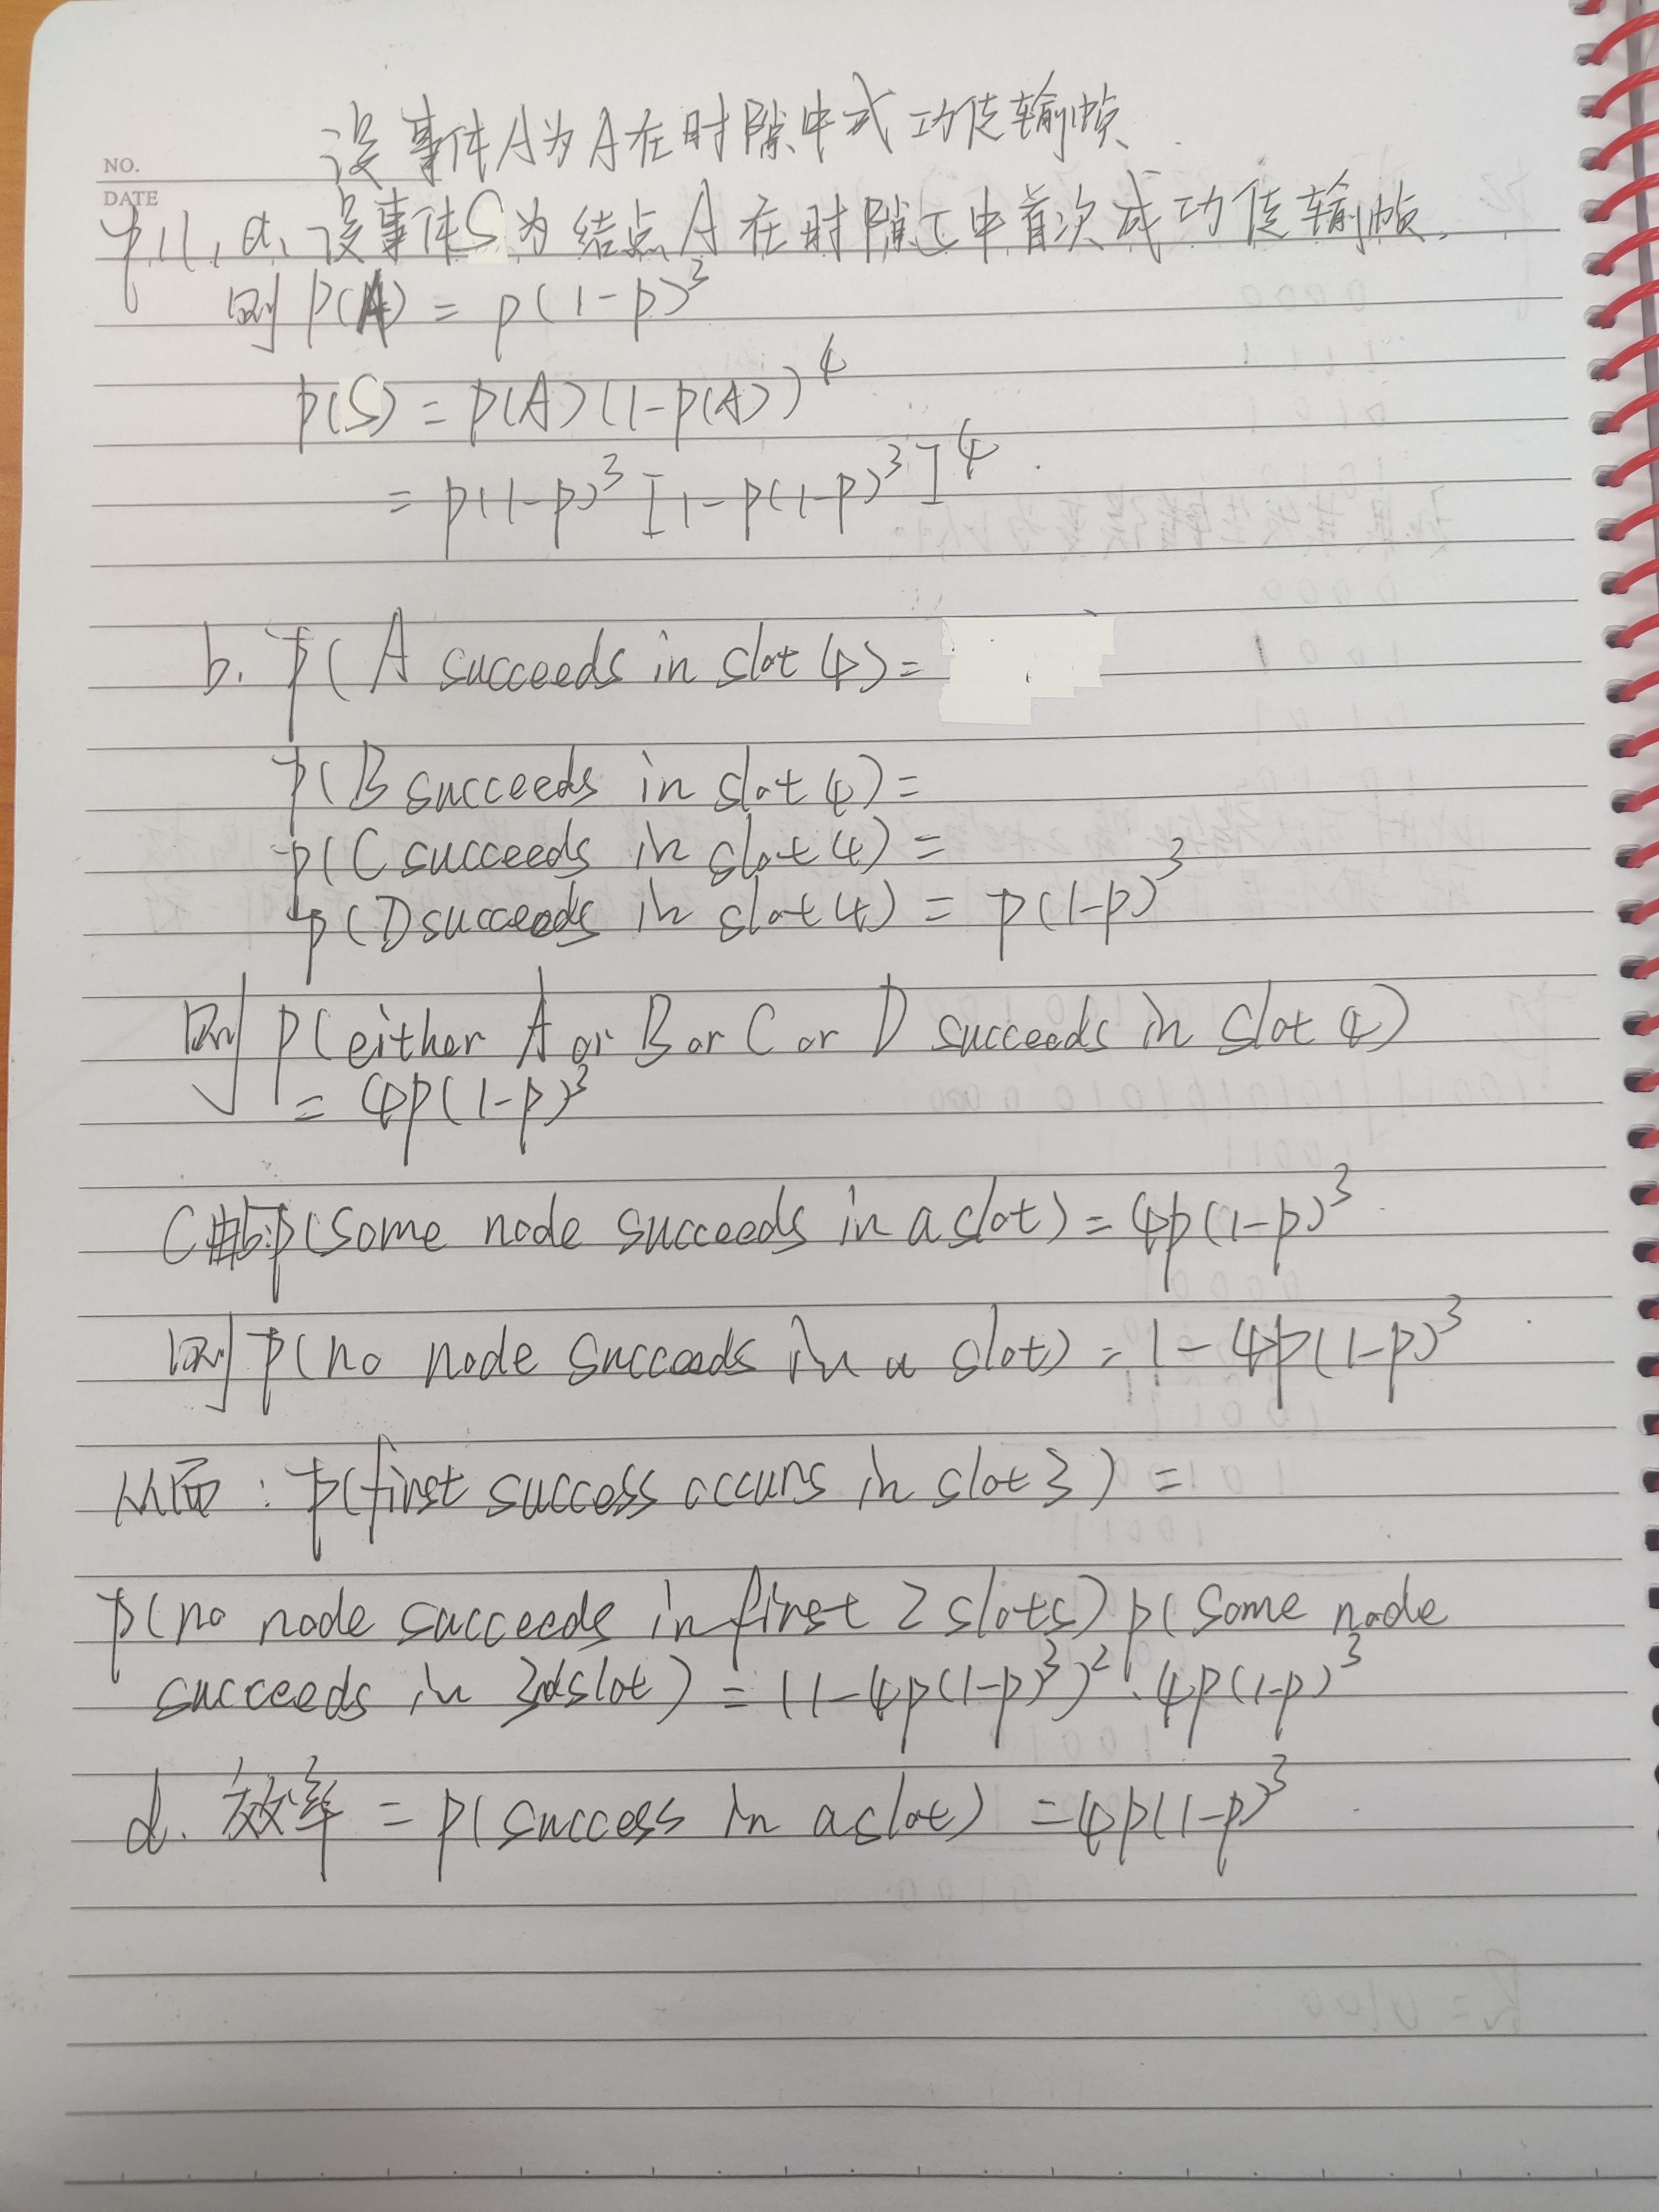 设事件A为A在时隙中成功传输帧.
NO.
DATE
P11, a, 设事件S为结点A在时隙5中首次成功传输帧.
则 P(A) = p(1-p)³
P(S) = P(A)(1-P(A))⁴
= p(1-p)³[1-p(1-p)³]⁴.
b. P(A succeeds in slot 4) =
P(B succeeds in slot 4) =
P(C succeeds in slot 4) =
P(D succeeds in slot 4) = p(1-p)³
则 P(either A or B or C or D succeeds in slot 4)
= 4p(1-p)³
C 由b: P(some node succeeds in a slot) = 4p(1-p)³
则 P(no node succeeds in a slot) = 1-4p(1-p)³
从而: P(first success occurs in slot 3) =
P(no node succeeds in first 2 slots) P(some node
succeeds in 3rd slot) = (1-4p(1-p)³)²·4p(1-p)³
d. 效率 = P(success in a slot) = 4p(1-p)³